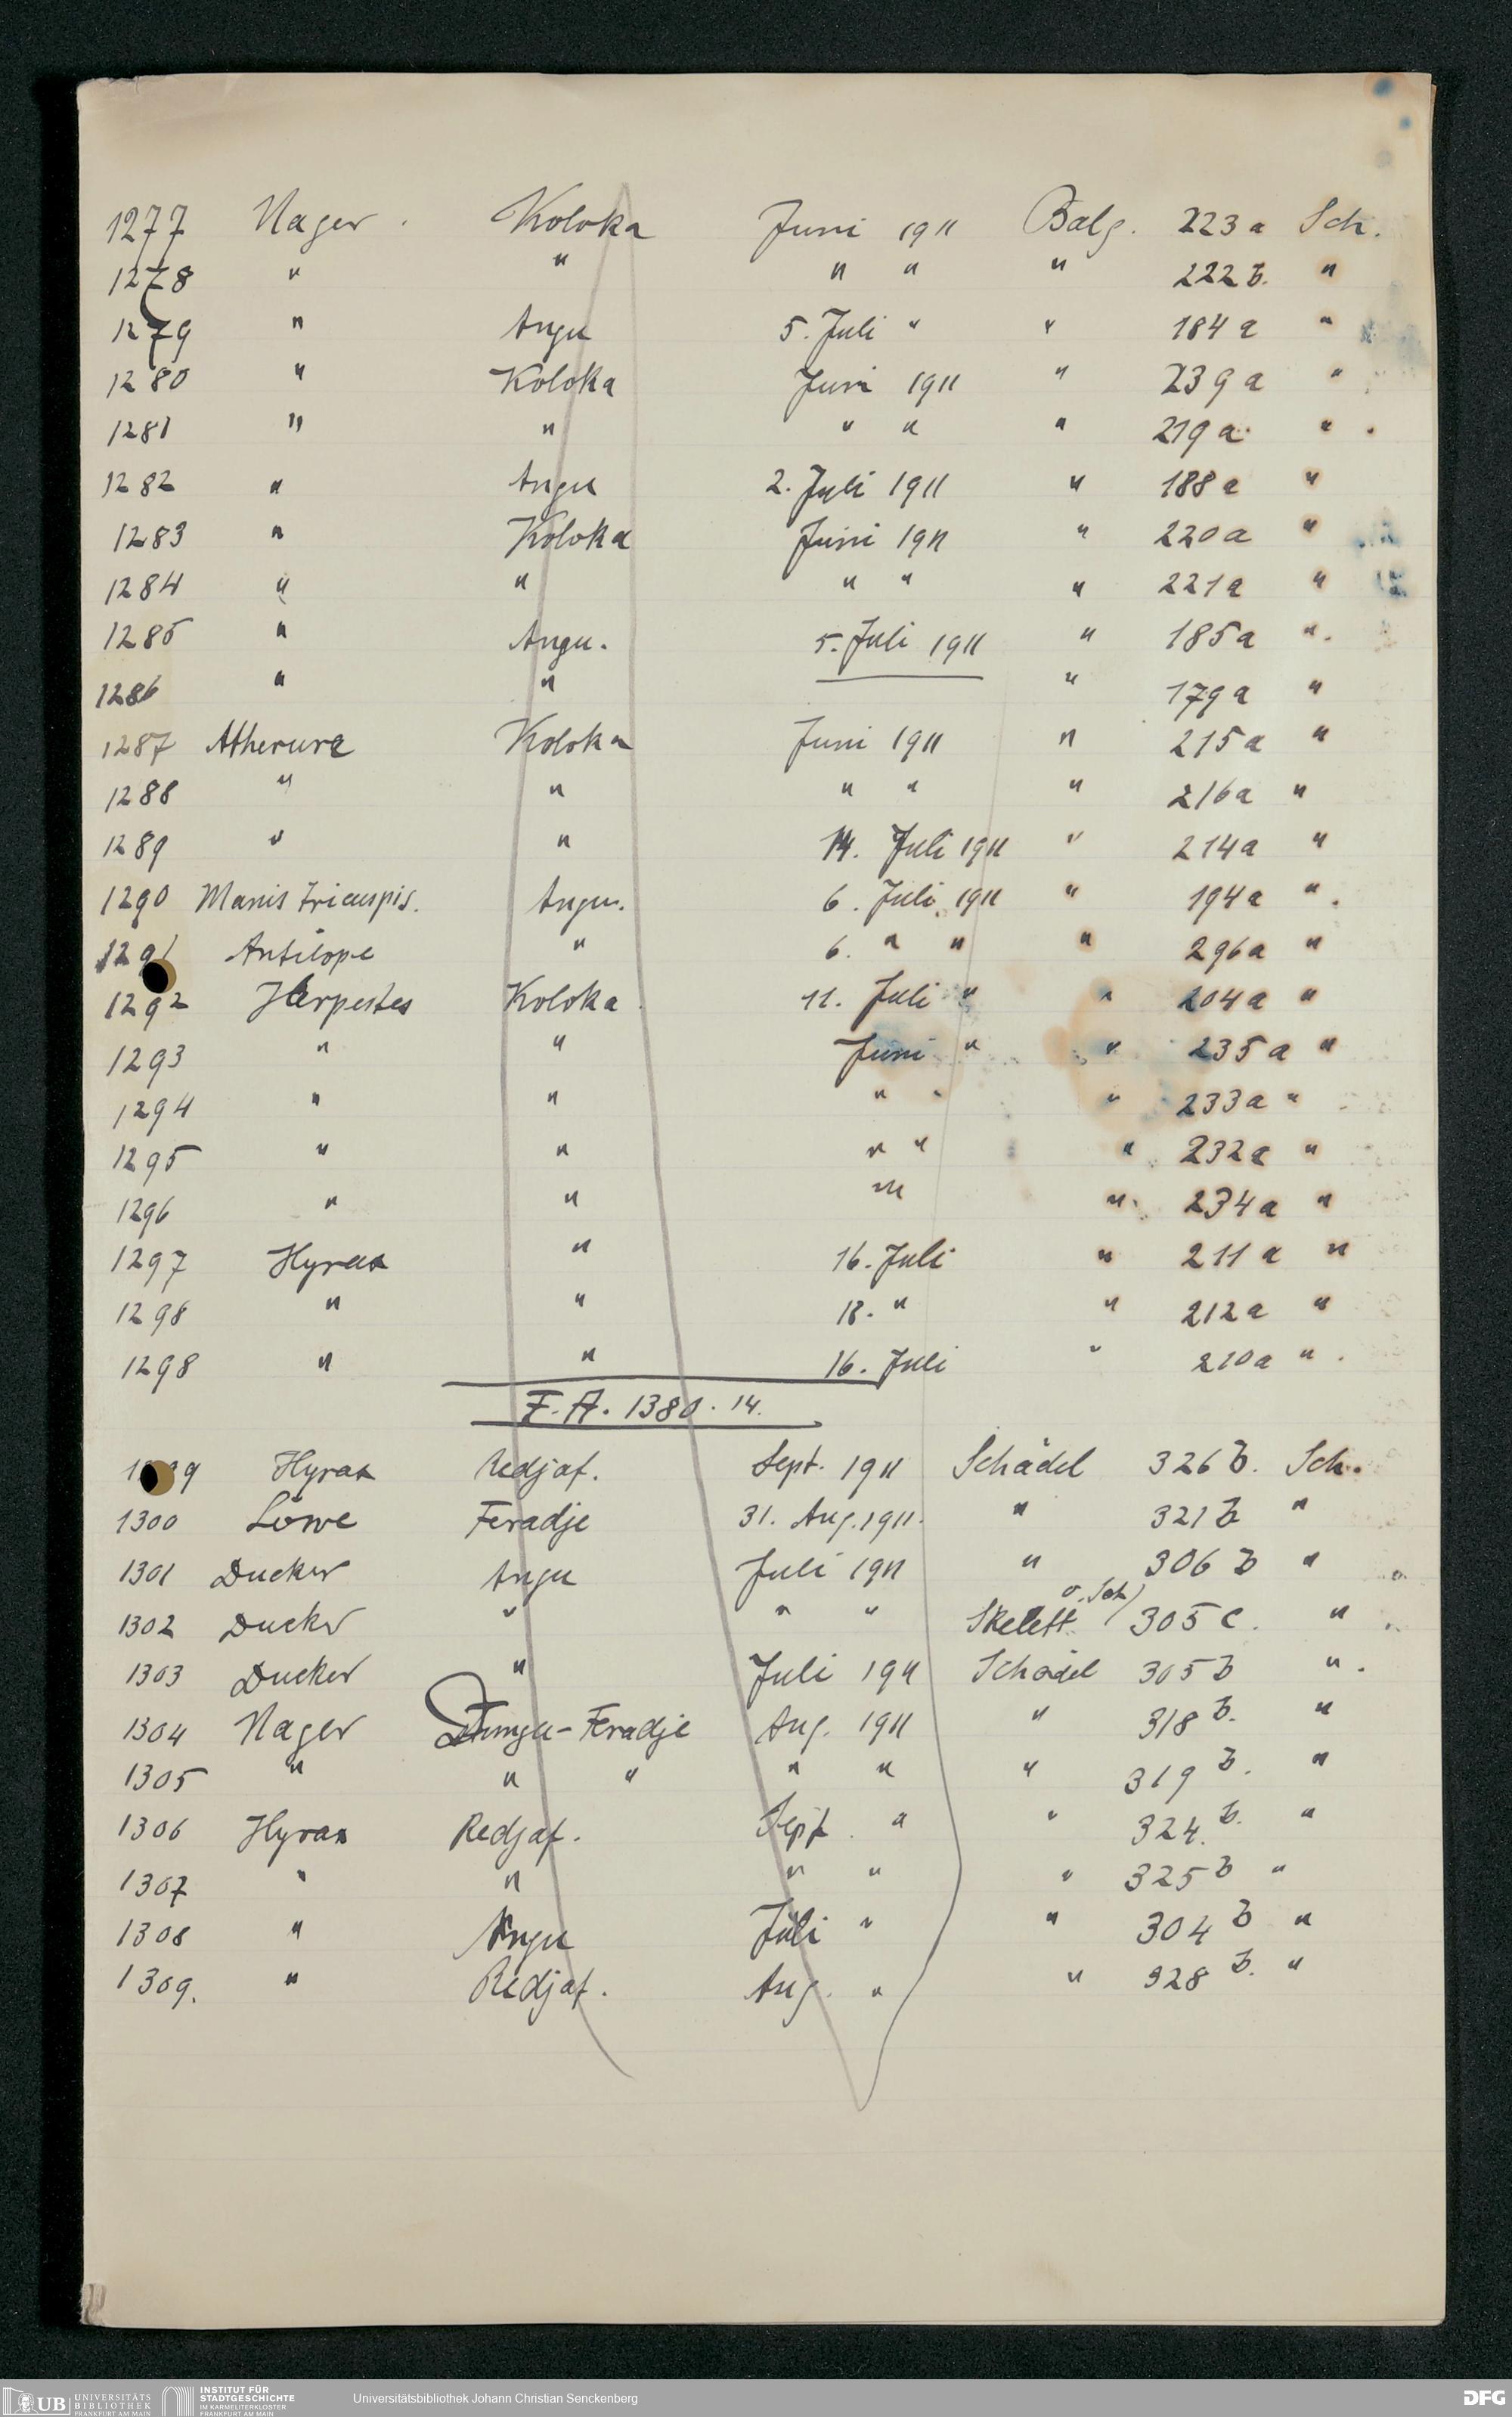 1277 Nager. Koloka Juni 1911 Balg. 223a Sch.
1278 " " " " " 222b. "
1279 " Angu 5. Juli " " 184a "
1280 " Koloka Juni 1911 " 239a "
1281 " " " " " 219a. " .
1282 " Angu 2. Juli 1911 " 188a "
1283 " Koloka Juni 1911 " 220a "
1284 " " " " " 221a "
1285 " Angu. 5. Juli 1911 " 185a ".
1286 " " " 179a "
1287 Atherura Koloka Juni 1911 " 215a "
1288 " " " " " 216a "
1289 " " 14. Juli 1911 " 214a "
1290 Manis tricuspis. Angu. 6. Juli 1911 " 194a ".
1291 Antilope " 6. " " " 296a "
1292 Herpestes Koloka 11. Juli " " 204a "
1293 " " Juni " " 235a "
1294 " " " " " 233a "
1295 " " " " " 232a "
1296 " " " " " 234a "
1297 Hyrax " 16. Juli " 211a "
1298 " " 18. " " 212a "
1298 " " 16. Juli " 210a ".
F.A. 1380. 14.
1299 Hyrax Redjaf. Sept. 1911 Schädel 326b. Sch.
1300 Löwe Feradje 31. Aug. 1911. " 321b "
1301 Ducker Angu Juli 1911 " 306b "
o. Sch)
1302 Ducker " " " Skelett 305c. "
1303 Ducker " Juli 1911 Schädel 305b ".
1304 Nager Dungu-Feradje Aug. 1911 " 318b. "
1305 " " " " " " 319b. "
1306 Hyrax Redjaf. Sept. " " 324.b. "
1307 " " " " " 325b "
1308 " Angu Juli " " 304b "
1309. " Redjaf. Aug. " " 328b. "
UB UNIVERSITÄTS
BIBLIOTHEK
FRANKFURT AM MAIN
INSTITUT FÜR
STADTGESCHICHTE
IM KARMELITERKLOSTER
FRANKFURT AM MAIN
Universitätsbibliothek Johann Christian Senckenberg
DFG